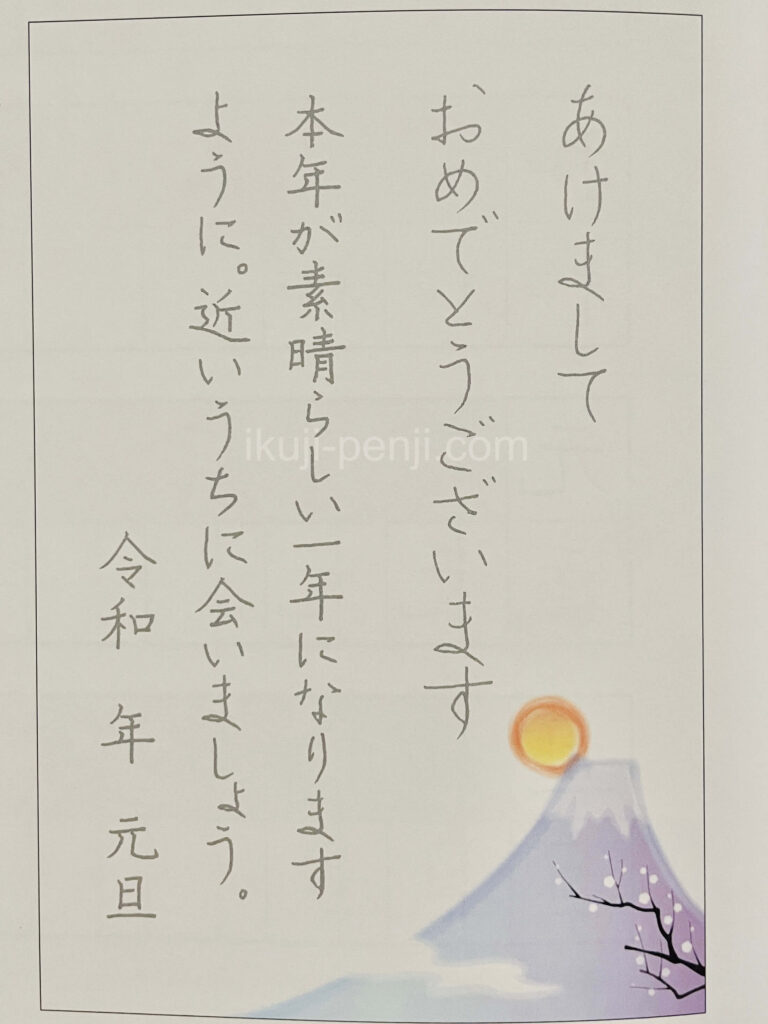 あけまして
おめでとうございます
本年が素晴らしい一年になります
ように。近いうちに会いましょう。
令和　年　元旦
ikuji-penji.com